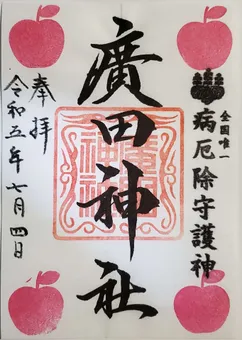 全国唯一
病厄除守護神
廣田神社
奉拝
令和五年七月四日